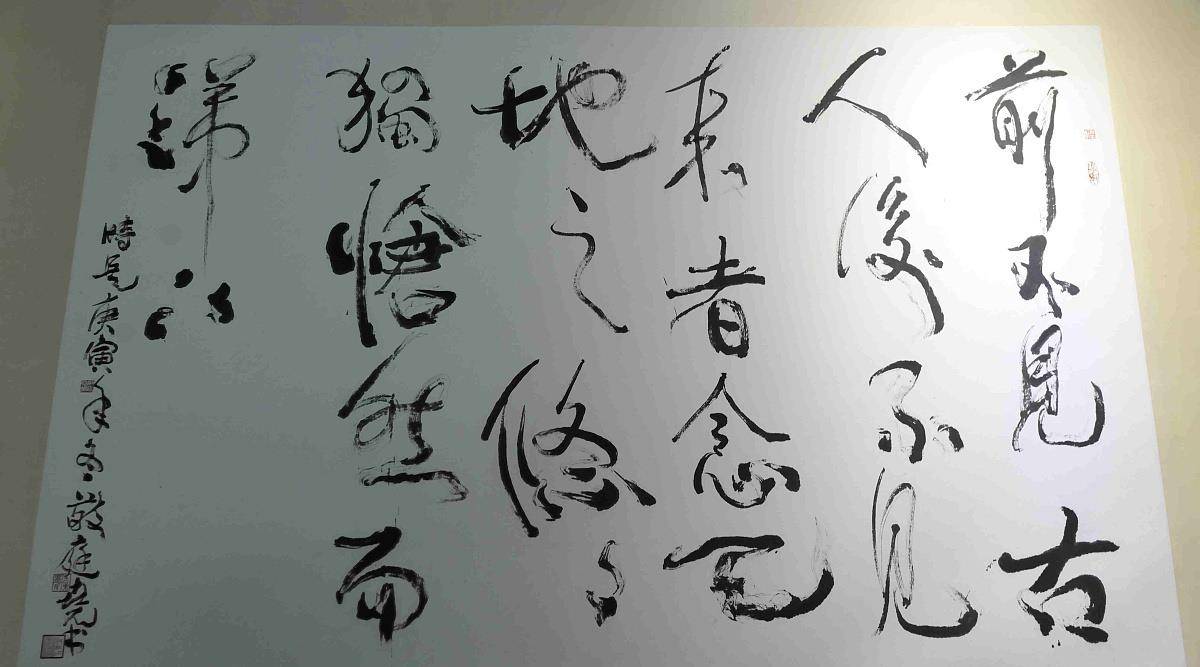 前不見古
人後不見
来者念天
地之悠々
獨愴然而
涕下
時是庚寅年冬庭堯书